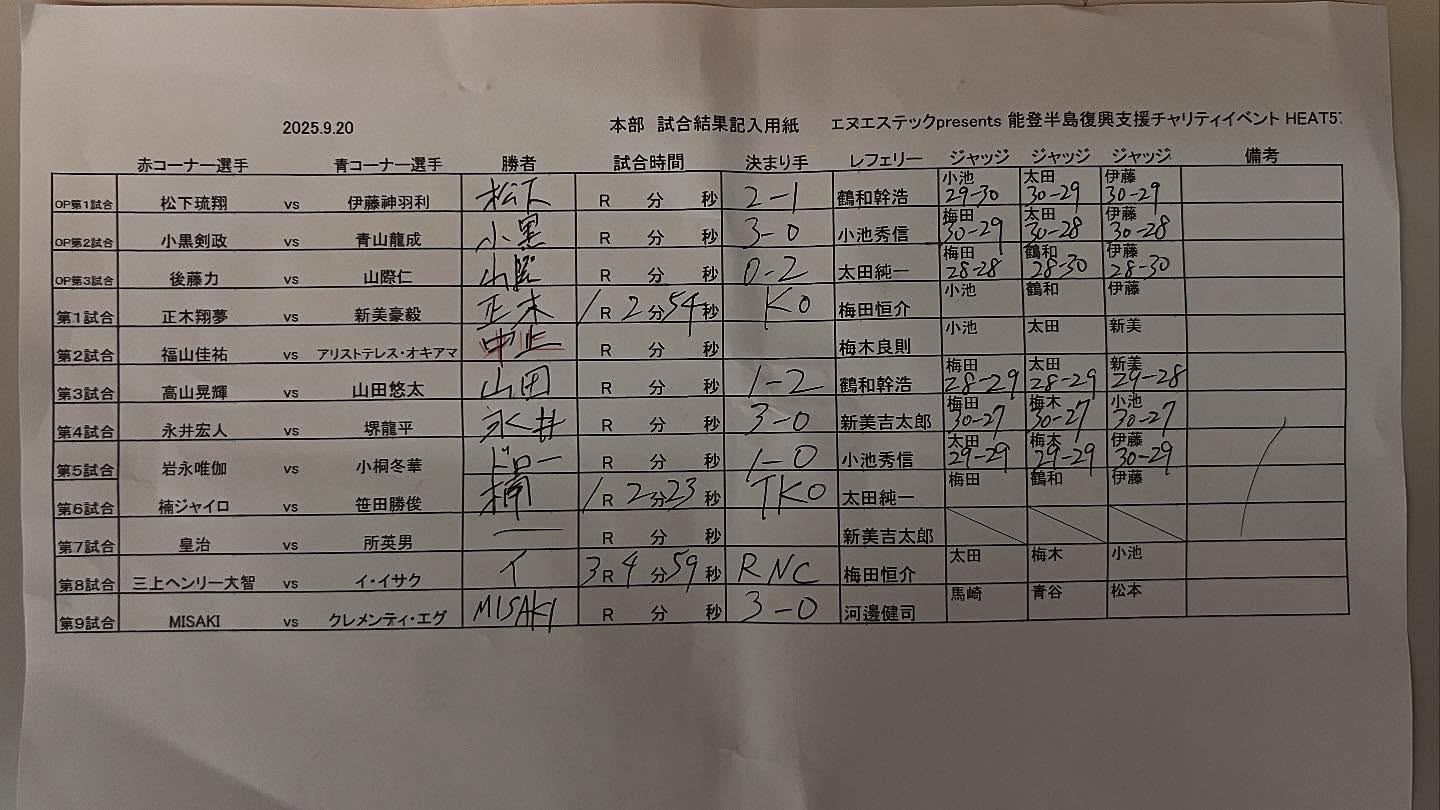 2025.9.20 本部 試合結果記入用紙 エヌエステックpresents 能登半島復興支援チャリティイベント HEAT57
赤コーナー選手 青コーナー選手 勝者 試合時間 決まり手 レフェリー ジャッジ ジャッジ ジャッジ 備考
OP第1試合 松下琉翔 vs 伊藤神羽利 松下 R 分 秒 2-1 鶴和幹浩 小池 29-30 太田 30-29 伊藤 30-29
OP第2試合 小黒剣政 vs 青山龍成 小黒 R 分 秒 3-0 小池秀信 梅田 30-29 太田 30-28 伊藤 30-28
OP第3試合 後藤力 vs 山際仁 山際 R 分 秒 0-2 太田純一 梅田 28-28 鶴和 28-30 伊藤 28-30
第1試合 正木翔夢 vs 新美豪毅 正木 1R 2分54秒 KO 梅田恒介 小池 鶴和 伊藤
第2試合 福山佳祐 vs アリストテレス・オキアマ 中止 R 分 秒 梅木良則 小池 太田 新美
第3試合 高山晃輝 vs 山田悠太 山田 R 分 秒 1-2 鶴和幹浩 梅田 28-29 太田 28-29 新美 29-28
第4試合 永井宏人 vs 堺龍平 永井 R 分 秒 3-0 新美吉太郎 梅田 30-27 梅木 30-27 小池 30-27
第5試合 岩永唯伽 vs 小桐冬華 ドロー R 分 秒 1-0 小池秀信 太田 29-29 梅木 29-29 伊藤 30-29
第6試合 楠ジャイロ vs 笹田勝俊 楠 1R 2分23秒 TKO 太田純一 梅田 鶴和 伊藤
第7試合 皇治 vs 所英男 — R 分 秒 新美吉太郎
第8試合 三上ヘンリー大智 vs イ・イサク イ 3R 4分59秒 RNC 梅田恒介 太田 梅木 小池
第9試合 MISAKI vs クレメンティ・エグ MISAKI R 分 秒 3-0 河邊健司 馬崎 青谷 松本